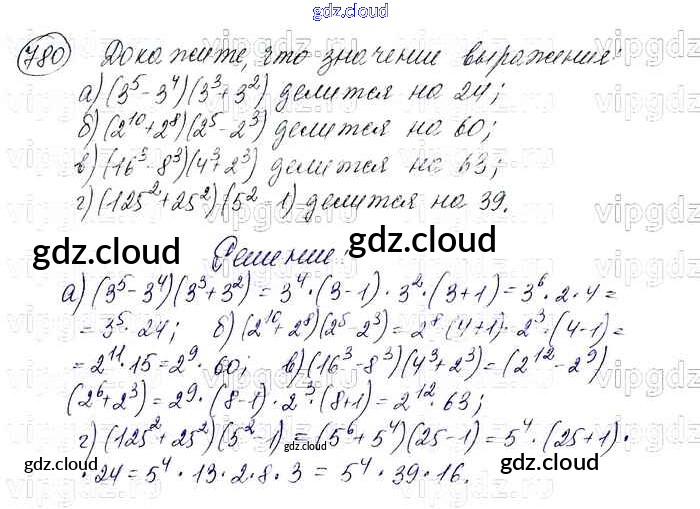 gdz.cloud
780 Докажите, что значение выражения:
а) (3⁵-3⁴)(3³+3²) делится на 24;
б) (2¹⁰+2⁸)(2⁵-2³) делится на 60;
в) (16³-8³)(4³+2³) делится на 63;
г) (125²+25²)(5²-1) делится на 39.
gdz.cloud Решение: gdz.cloud
а) (3⁵-3⁴)(3³+3²) = 3⁴·(3-1)·3²·(3+1) = 3⁶·2·4 =
= 3⁵·24; б) (2¹⁰+2⁸)(2⁵-2³) = 2⁸·(4+1)·2³·(4-1) =
= 2¹¹·15 = 2⁹·60; в) (16³-8³)(4³+2³) = (2¹²-2⁹)
(2⁶+2³) = 2⁹·(8-1)·2³·(8+1) = 2¹²·63;
г) (125²+25²)(5²-1) = (5⁶+5⁴)(25-1) = 5⁴·(25+1)·
·24 = 5⁴·13·2·8·3 = 5⁴·39·16.
gdz.cloud gdz.cloud gdz.cloud
gdz.cloud